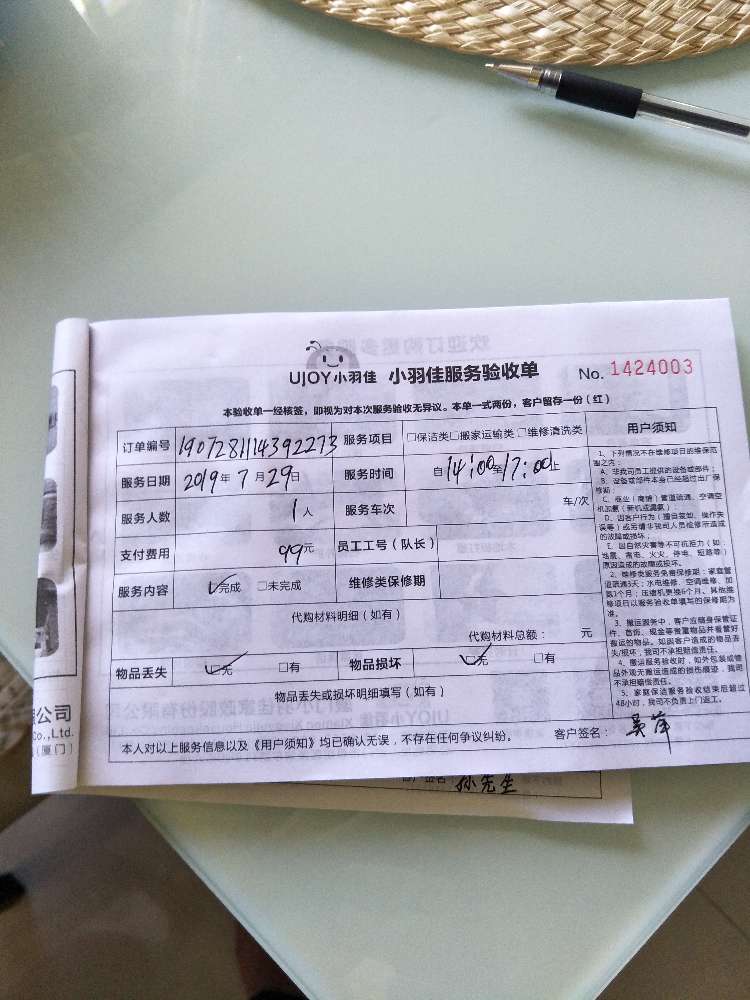 UJOY小羽佳 小羽佳服务验收单 No. 1424003
本验收单一经核签，即视为对本次服务验收无异议。本单一式两份，客户留存一份（红）
订单编号 1907281114392273 服务项目 □保洁类□搬家运输类 □维修清洗类 用户须知
服务日期 2019年 7 月 29日 服务时间 自14:00至17:00止
服务人数 1 人 服务车次 车/次
支付费用 99元 员工工号（队长）
服务内容 ☑完成 □未完成 维修类保修期
代购材料明细（如有）
代购材料总额： 元
物品丢失 ☑无 □有 物品损坏 ☑无 □有
物品丢失或损坏明细填写（如有）
本人对以上服务信息以及《用户须知》均已确认无误，不存在任何争议纠纷。 客户签名：吴萍
1、下列情况不在维修项目的维保范围之内：
A、非我司员工提供的设备或部件；
B、设备或部件本身已经超过出厂保修期；
C、商业（商铺）管道疏通、空调空机加氟（新机或漏氟）
D、因客户行为（擅自安装、操作失误等）或另请非我司人员维修所造成的故障或损坏；
E、因自然灾害等不可抗拒力（如：地震、雷电、火火、停电、短路等）原因造成的故障或损坏。
2、维修类服务免费保修期：家庭管道疏通3天；水电维修、空调维修、加氨3个月；压缩机更换6个月。其他维修项目以服务验收单填写的保修期为准。
3、搬运服务中，客户应随身保管证件、首饰、现金等贵重物品并看管好搬运的物品。如因客户造成的物品丢失/损坏，我司不承担赔偿责任。
4、搬运服务验收时，如外包装或物品外观无搬运造成的损伤痕迹，我司不承担赔偿责任。
5、家庭保洁服务验收结束后超过48小时，我司不负责上门返工。
公司
Co.,Ltd.
（厦门）
孙先生